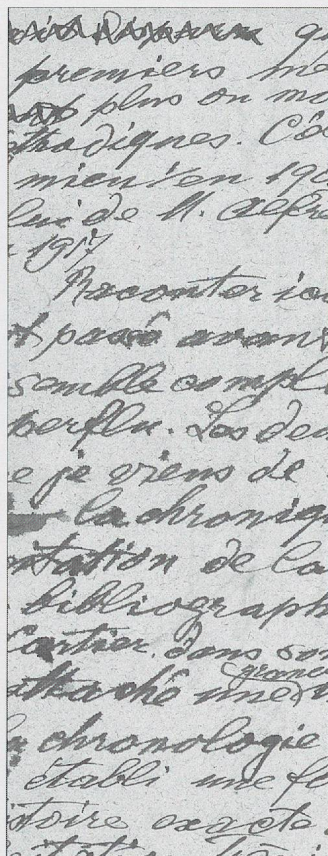 qu
premiers me
plus ou mo
tradiques. C'e
mien en 190
lui de M. Alfre
1917
Raconter ici
t passé avant
semble compl
perflu. Les deu
e je viens de
la chroniq
ntation de la
bibliograph
Cartier, dans son
grand
attaché une
la chronologie
établi une f
stoire exacte.